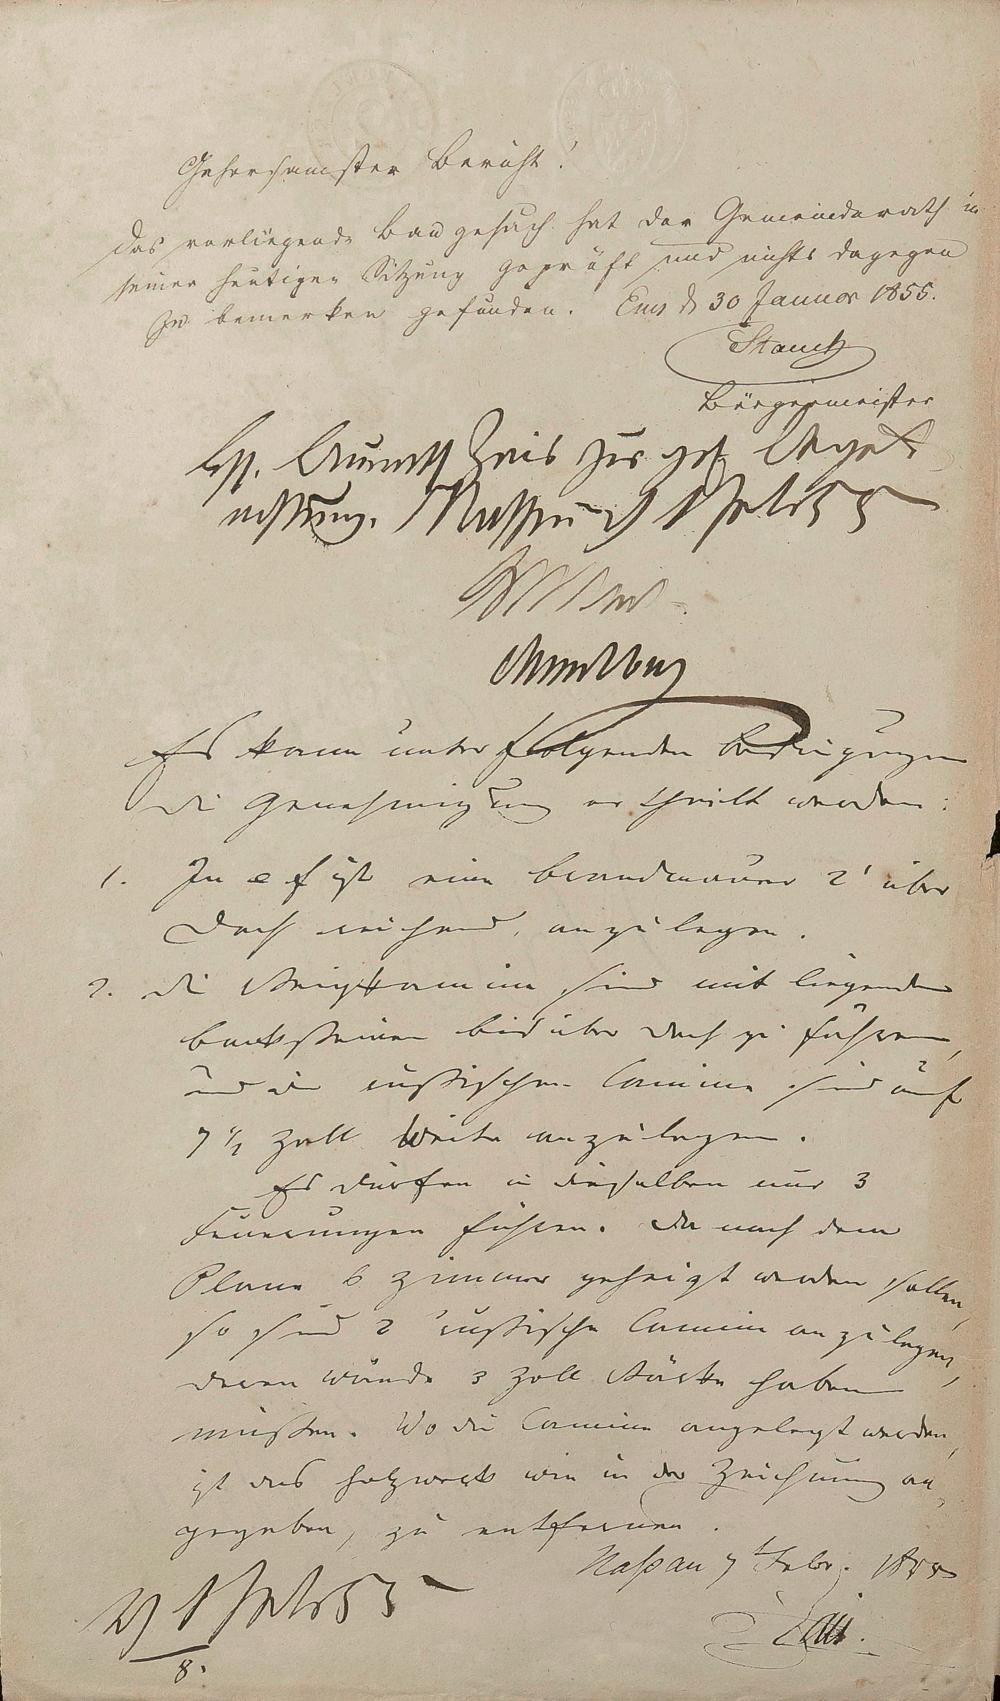 Gehorsamster Bericht!
Das vorliegende Baugesuch hat der Gemeinderath in
seiner heutigen Sitzung geprüft und nichts dagegen
zu bemerken gefunden. Ems d 30 Januar 1855.
Stauch
Bürgermeister
zur gef.
Nassau d 1 Febr 55
Es kann unter folgenden Bedingungen
die Genehmigung ertheilt werden:
1. In e f ist eine Brandmauer 2' über
Dach reichend, anzulegen.
2. die Steigkamine sind mit liegenden
Backsteinen bis über Dach zu führen,
und die russischen Camine sind auf
7 1/2 Zoll Weite anzulegen.
Es dürfen in dieselben nur 3
Feuerungen führen. Da nach dem
Plane 6 Zimmer geheizt werden sollen,
so sind 2 russische Camine anzulegen,
deren Wände 3 Zoll Stärke haben
müssen. Wo die Camine angelegt werden,
ist das Holzwerk wie in der Zeichnung an-
gegeben, zu entfernen.
Nassau 7t Febr. 1855
1 Febr 55
8.
Zais.